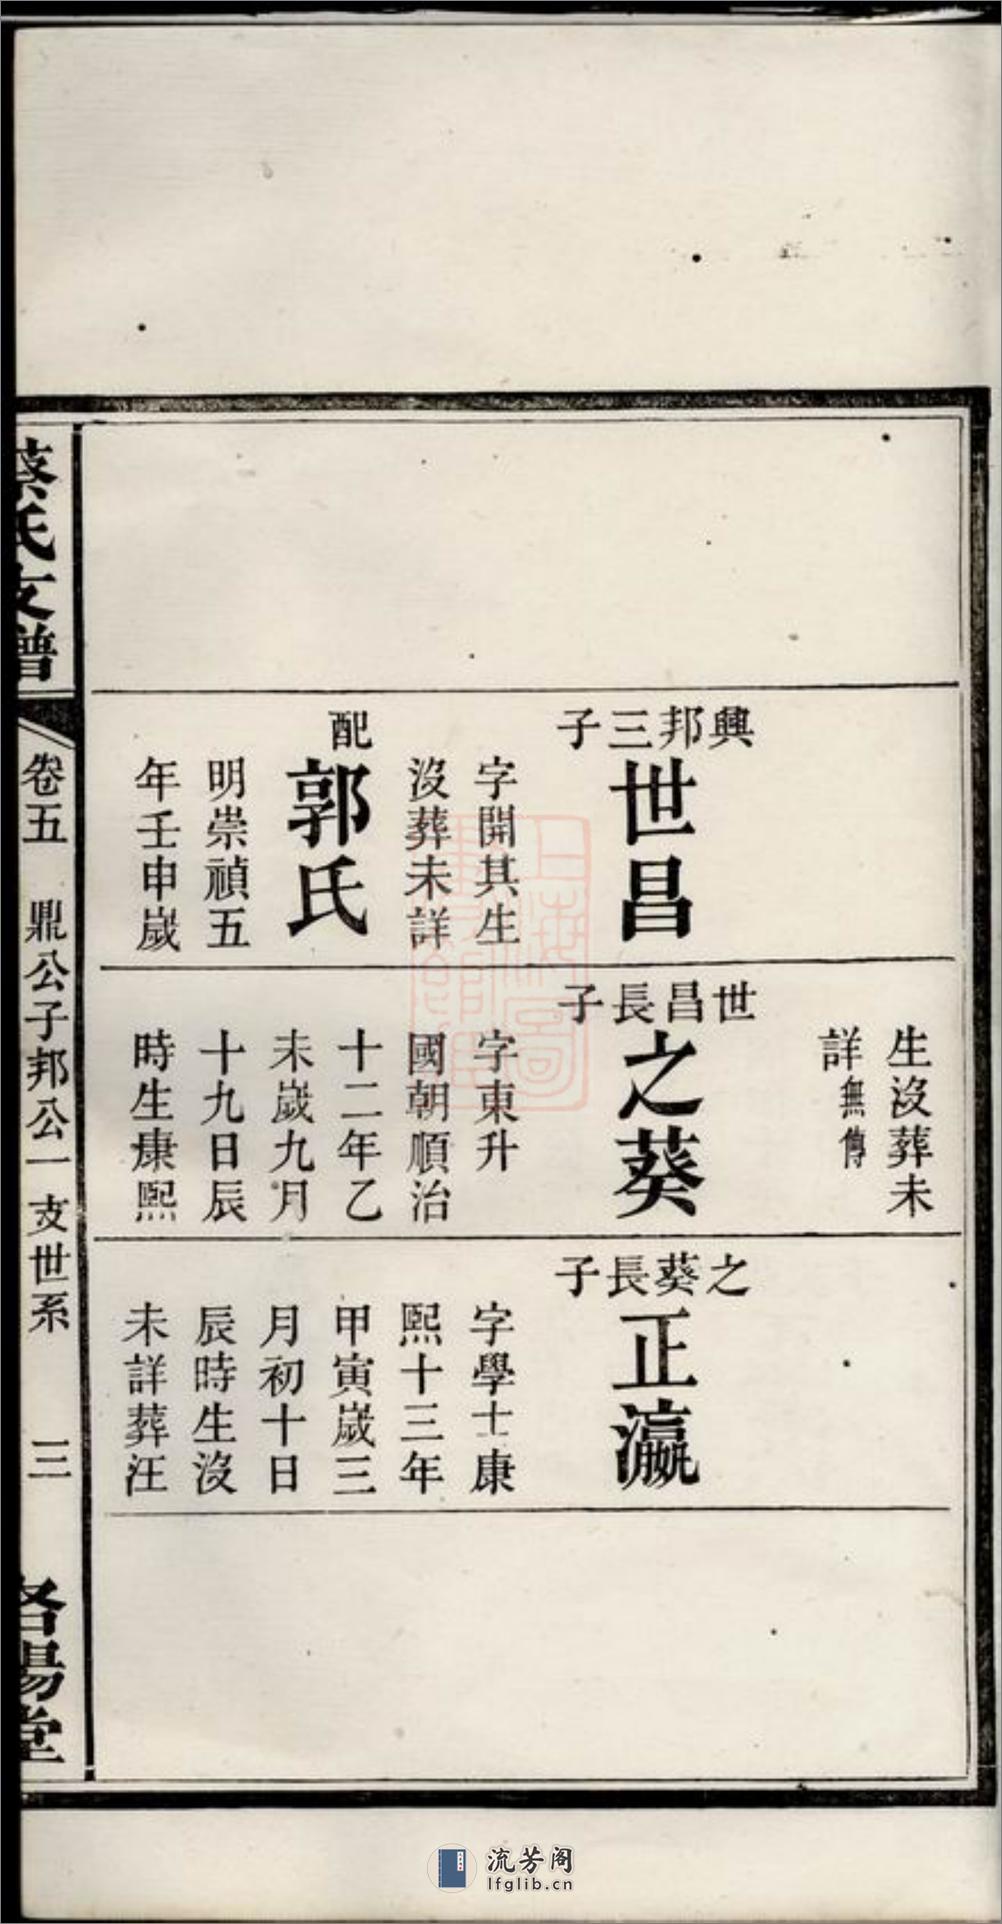 興邦三子
世昌
字開其生
沒葬未詳
配
郭氏
明崇禎五
年壬申歲
生沒葬未
詳無傳
世昌長子
之葵
字東升
國朝順治
十二年乙
未歲九月
十九日辰
時生康熙
之葵長子
正瀛
字學士康
熙十三年
甲寅歲三
月初十日
辰時生沒
未詳葬汪
蔡氏支譜
卷五
鼎公子邦公一支世系
三
洛陽堂
上海圖
書館藏
流芳阁
lfglib.cn